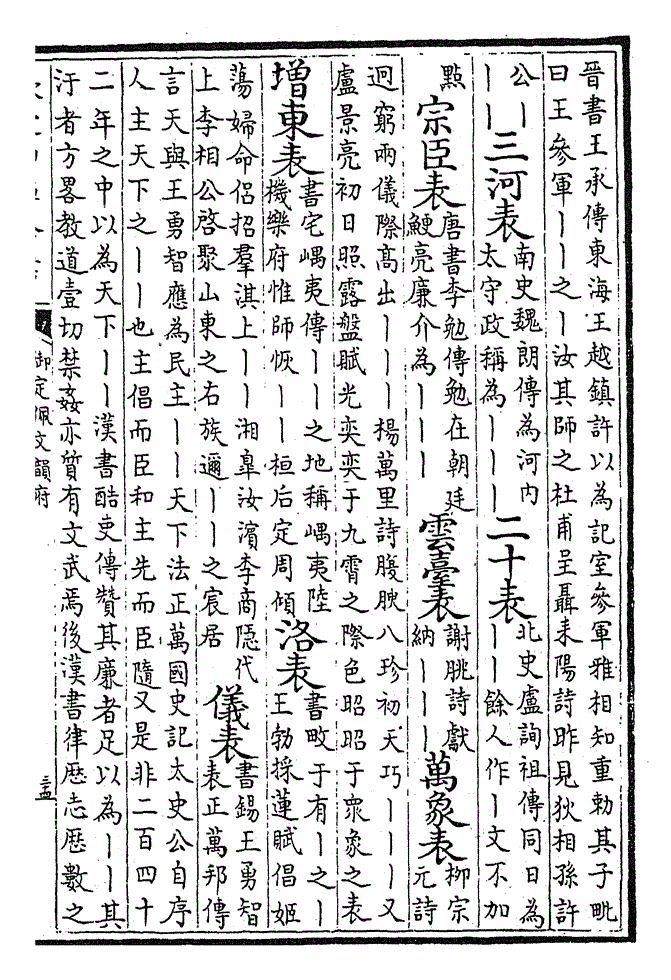 晉書王承傳東海王越鎮許以為記室參軍雅相知重勅其子毗
曰王參軍丨丨之丨汝其師之杜甫呈聶耒陽詩昨見狄相孫許
公丨
丨丨
三河表
南史魏朗傳為河内
太守政稱為丨丨丨
二十表
北史盧詢祖傳同日為
丨丨餘人作丨文不加
點
宗臣表
唐書李勉傳勉在朝廷
鯁亮廉介為丨丨丨
雲臺表
謝朓詩獻
納丨丨丨
萬象表
柳宗
元詩
迥窮兩儀際高出丨丨丨楊萬里詩腹腴八珍初天巧丨丨丨又
盧景亮初日照露盤賦光奕奕于九霄之際色昭昭于眾象之表
增東表
書宅嵎夷傳丨丨之地稱嵎夷陸
機樂府惟師恢丨丨桓后定周傾
洛表
書畋于有丨之丨
王勃採蓮賦倡姬
蕩婦命侶招羣淇上丨丨湘皐汝濱李商隱代
上李相公啓聚山東之右族邇丨丨之宸居
儀表
書錫王勇智
表正萬邦傳
言天與王勇智應為民主丨丨天下法正萬國史記太史公自序
人主天下之丨丨也主倡而臣和主先而臣隨又是非二百四十
二年之中以為天下丨丨漢書酷吏傳贊其廉者足以為丨丨其
汙者方畧教道壹切禁姦亦質有文武焉後漢書律歷志歷數之
御定佩文韻府